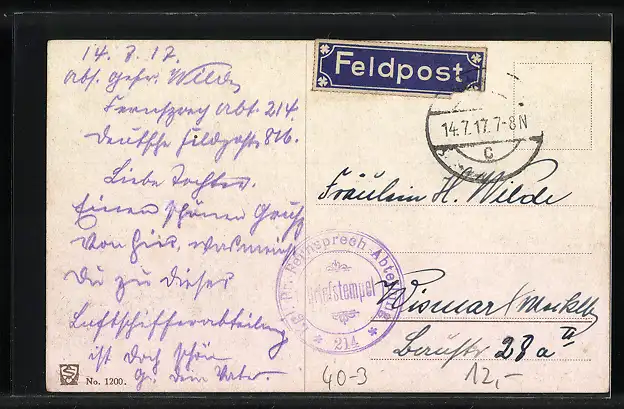 14. 7. 17.
Abs. Gefr. Wilde
Fernsprech Abt. 214
Deutsche Feldpost 816.
Liebe Tochter.
Einen schönen Gruß
von hier, was meinst
Du zu dieser
Luftschifferabteilung
ist doch schön
Gr. dein Vater.
No. 1200.
Feldpost
14.7.17.7-8N
c
Fräulein H. Wilde
Wismar (Mecklb
Baustr 23 a II
Kgl. Pr. Fernsprech Abteilung
Briefstempel
* 214 *
40-3
12,-